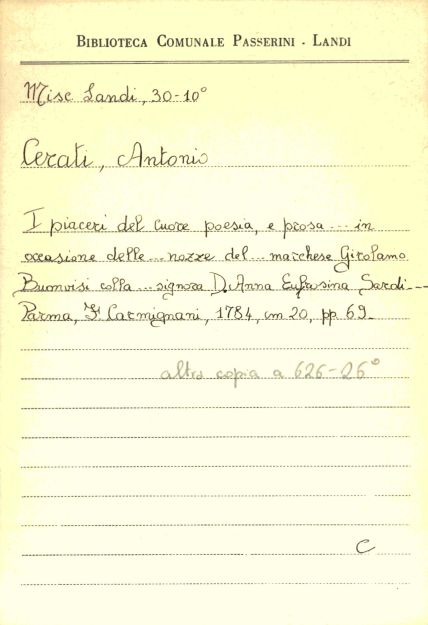 BIBLIOTECA COMUNALE PASSERINI - LANDI
Misc Landi, 30-10°
Cerati, Antonio
I piaceri del cuore poesia, e prosa ... in
occasione delle ... nozze del ... marchese Girolamo
Buonvisi colla ... signora D. Anna Eufrasina Sardi--
Parma, F. Carmignani, 1784, cm 20, pp 69-
altra copia a 626-26°
C